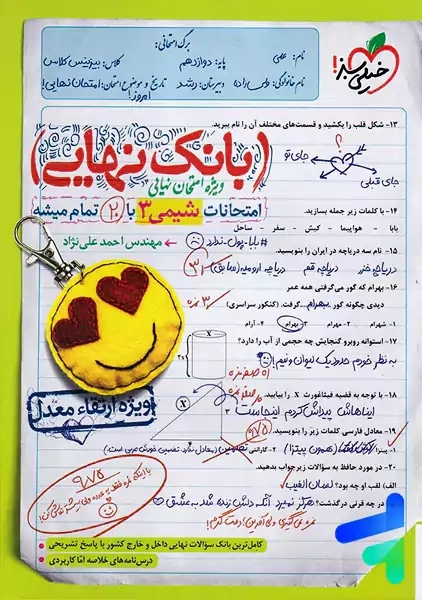 برگ امتحانی:
خیلی سبز!
نام: علی
پایه: دوازدهم
کلاس: بیزینس کلاس
نام خانوادگی: ولی‌زاده
دبیرستان: رشد
تاریخ و موضوع امتحان: امتحان نهایی! امروز!
۱۳- شکل قلب را بکشید و قسمت‌های مختلف آن را نام ببرید.
؟
جای تو
جای قبلی
(بانک نهایی)
ویژه امتحان نهایی
امتحانات شیمی ۳ با ۲۰ تمام میشه
مهندس احمد علی‌نژاد
۱۴- با کلمات زیر جمله بسازید.
بابا - هواپیما - کیش - سفر - ساحل
#بابا-پول-ندارد
۱۵- نام سه دریاچه در ایران را بنویسید.
دریاچه خزر
دریاچه قم
دریاچه ارومیه (سابق)
۱۶- بهرام که گور می‌گرفتی همه عمر
دیدی چگونه گور بهرام گرفت. (کنکور سراسری)
۱- شهرام ۲- مهرام ۳- بهرام ۴- آرام
۱۷- استوانه روبرو گنجایش چه حجمی از آب را دارد؟
به نظر خودم حدود یک لیوان و نیم!
X
۱۸- با توجه به قضیه فیثاغورث X را بیابید.
ایناهاش پیداش کردم اینجاست
X
۱۹- معادل فارسی کلمات زیر را بنویسید.
۱- پیتزا (همون پیتزا)
۲- گارانتی تضمین
۲۰- در مورد حافظ به سؤالات زیر جواب بدهید.
الف) لقب او چه بود؟ لسان الغیب
در چه قرنی درگذشت؟ هرگز نمیرد آنکه دلش زنده شد به عشق
ویژه ارتقاء معدل
۹/۷۵
کامل‌ترین بانک سؤالات نهایی داخل و خارج کشور با پاسخ تشریحی
درس‌نامه‌های خلاصه اما کاربردی